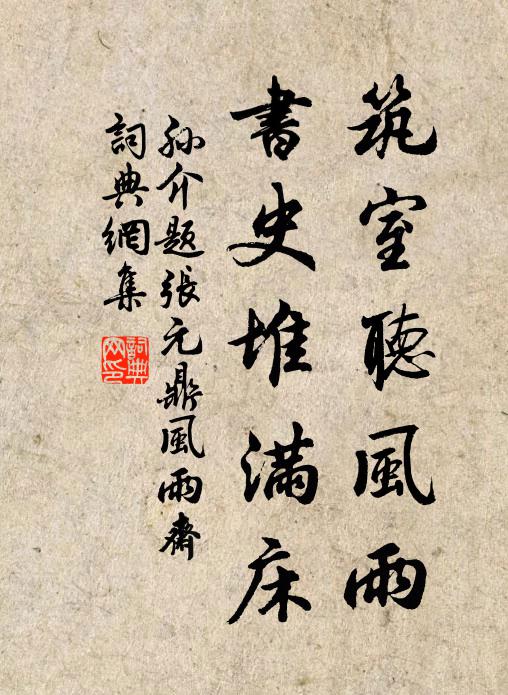 筑室聽風雨
書史堆滿床
孫介題張元鼎風雨齋
詞典網集
詞典網印